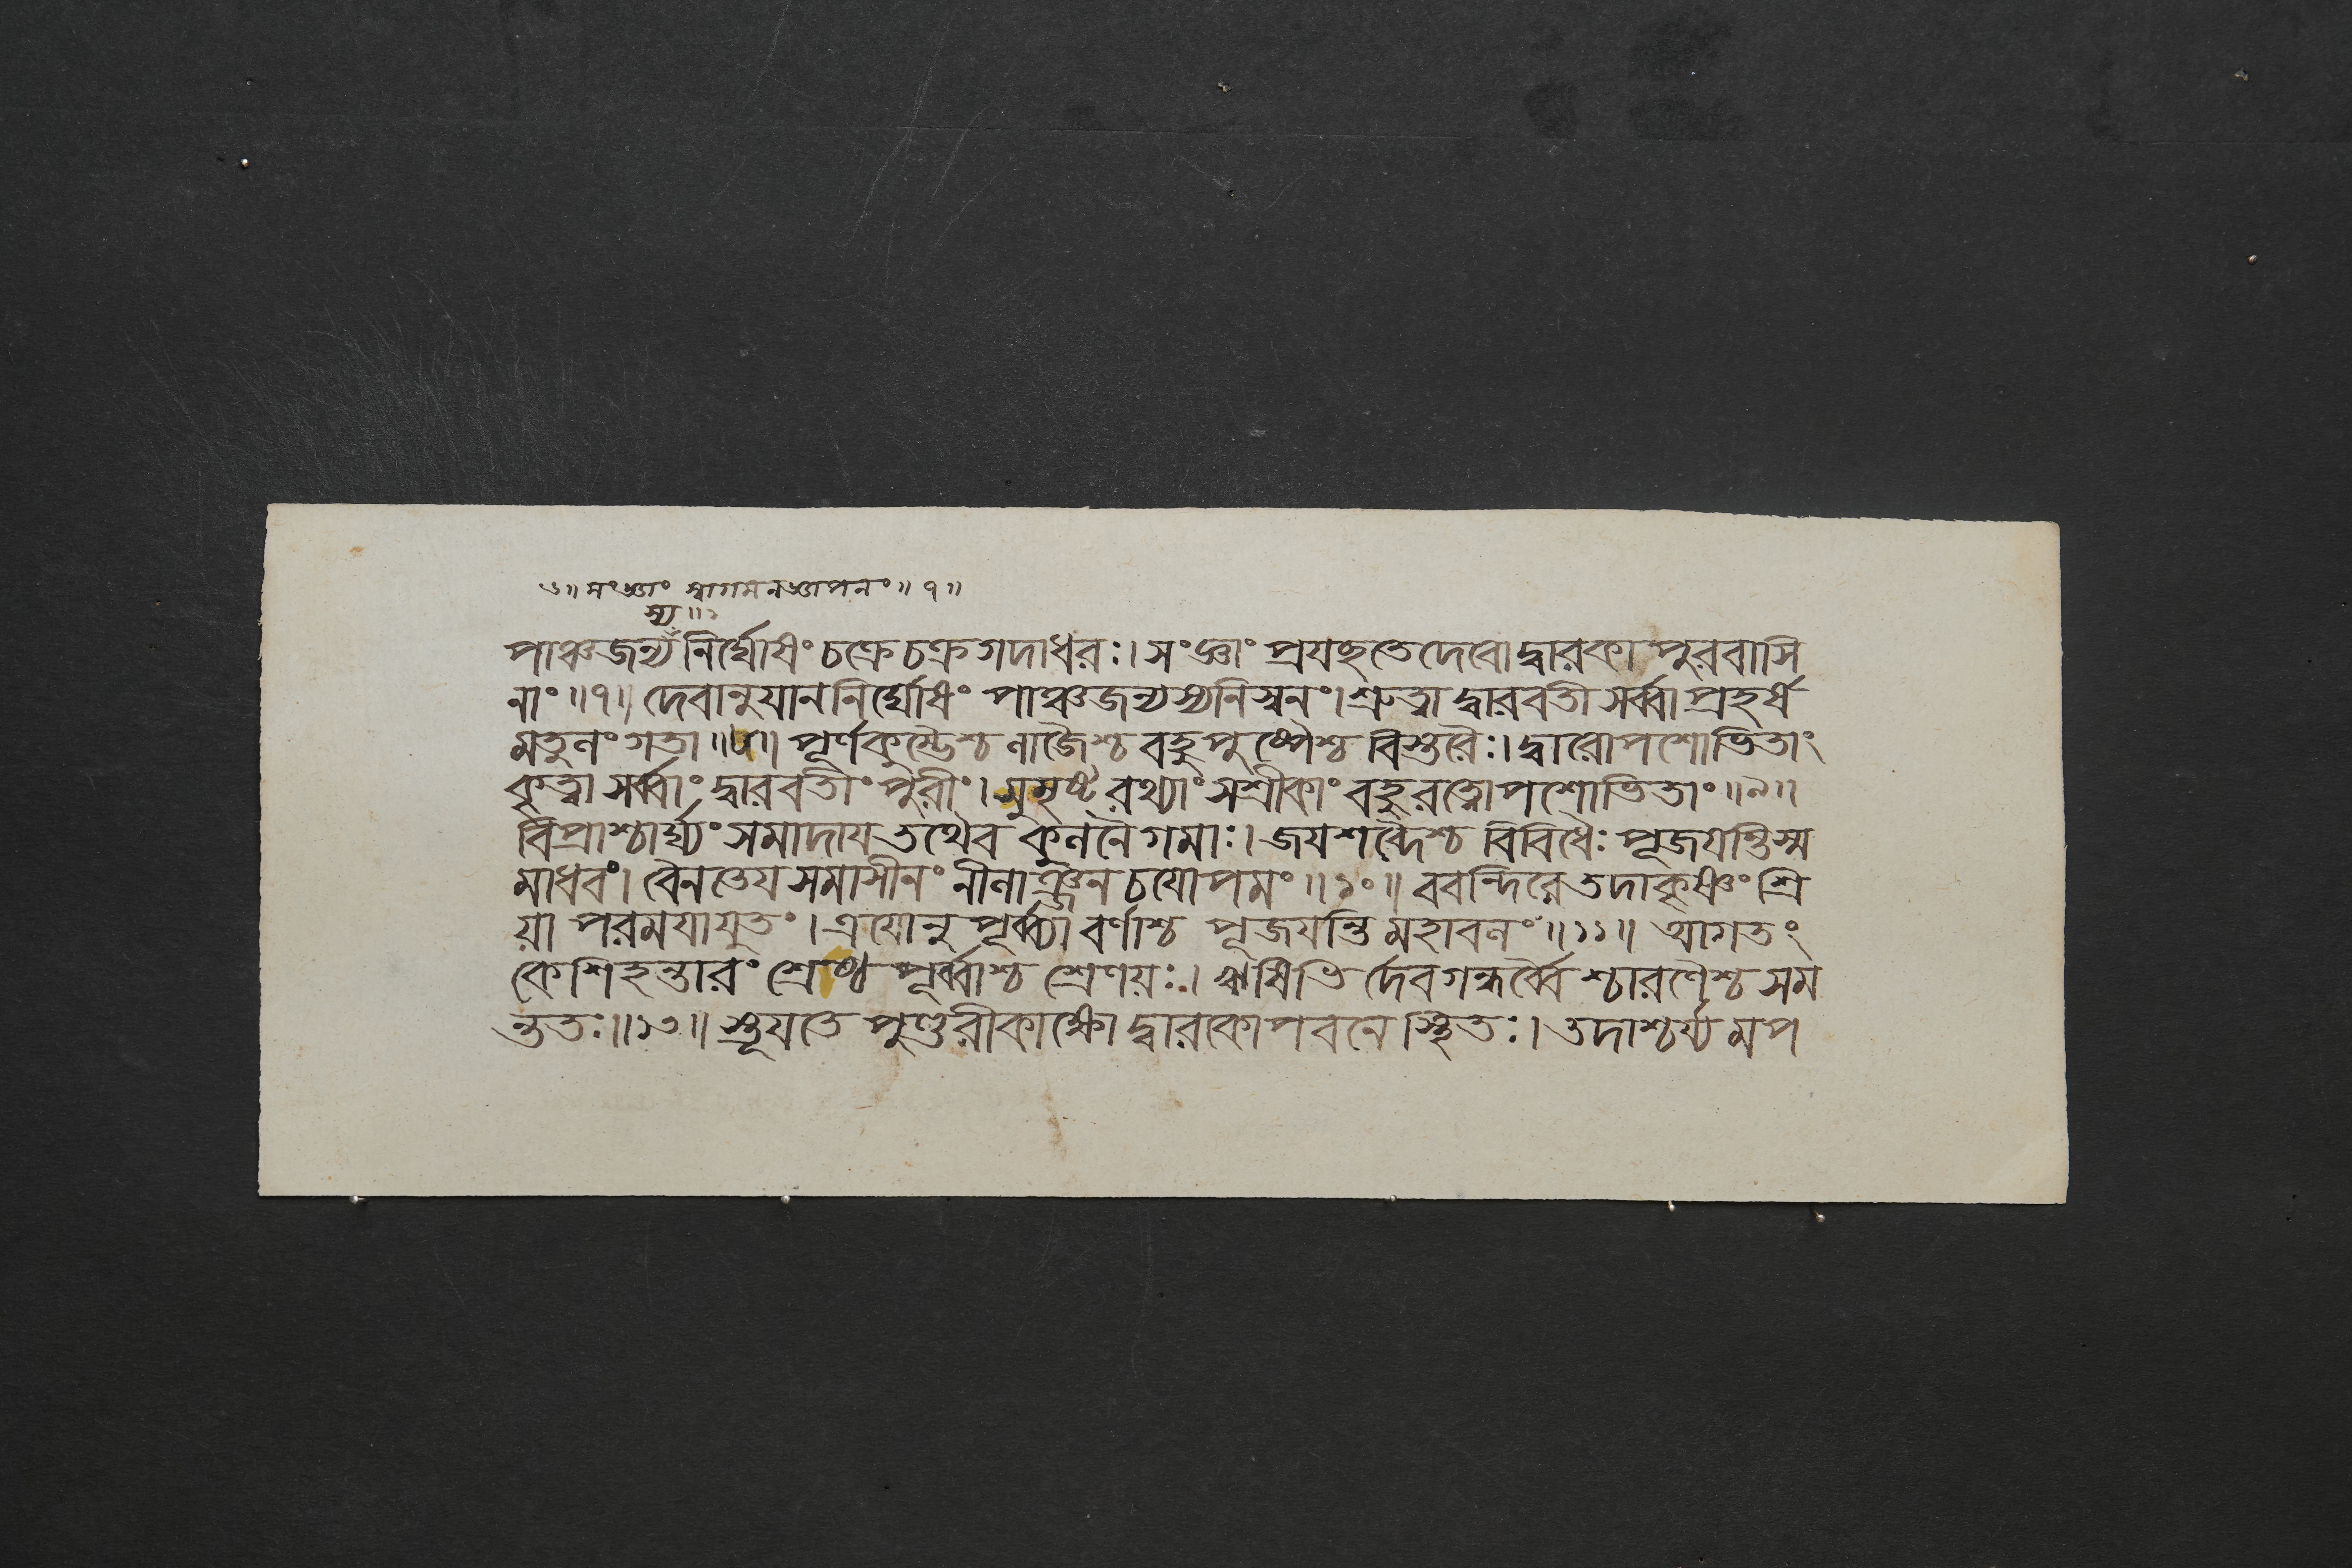 ৬॥ সংজ্ঞাং স্বাগমনজ্ঞাপনং॥ ৭॥
স্য॥১
পাঞ্চজন্যঁ নির্ঘোষং চক্রে চক্রগদাধরঃ। সংজ্ঞাং প্রযচ্ছতে দেবো দ্বারকাপুরবাসি
নাং॥৭॥ দেবানুযাননির্ঘোষং পাঞ্চজন্যস্য নিস্বনং। শ্রুত্বা দ্বারবতী সর্ব্বা প্রহর্ষ
মতুলং গতা॥৮॥ পূর্ণকুম্ভৈশ্চ লাজৈশ্চ বহুপুষ্পৈশ্চ বিস্তরৈঃ। দ্বারোপশোভিতাং
কৃত্বা সর্ব্বাং দ্বারবতীং পুরীং। সুসৃষ্টরথ্যাং সশ্রীকাং বহুরত্নোপশোভিতাং॥৯॥
বিপ্রাশ্চার্ঘ্যং সমাদায তথৈব কুলনৈগমাঃ। জযশব্দৈশ্চ বিবিধৈঃ পূজযন্তি স্ম
মাধবং। বৈনতেযসমাসীনং নীলাঞ্জনচযোপমং॥১০॥ ববন্দিরে তদা কৃষ্ণং শ্রি
য়া পরমযা যুতং। ত্রযোনুপূর্ব্ব্যা বর্ণাশ্চ পূজযন্তি মহাবলং॥১১॥ আগতং
কেশিহন্তারং শ্রেষ্ঠপূর্ব্বাশ্চ শ্রেণয়ঃ। ঋষিভি র্দেবগন্ধর্ব্বৈ শ্চারণৈশ্চ সম
ন্ততঃ॥১২॥ স্তূযতে পুণ্ডরীকাক্ষো দ্বারকোপবনে স্থিতঃ। তদাশ্চর্য্যমপ